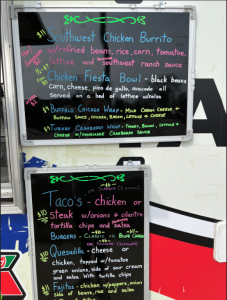 $11 Southwest Chicken Burrito
w/refried beans, rice, corn, tomatoe,
lettuce and southwest ranch sauce
Chicken Fiesta Bowl - black beans
corn, cheese, pico de gallo, avocado all
served on a bed of lettuce w/salsa
Buffalo Chicken Wrap - Mild Cream Cheese +
Buffalo Sauce, Chicken, Bacon, Lettuce + Cheese
Turkey Cranberry Wrap - Turkey, Bacon, Lettuce +
Cheese w/Homemade Cranberry Sauce
Taco's - chicken or
steak w/onions + cilantro
tortilla chips and salsa
Burgers - Classic or Blue Cheese
Quesadilla - cheese or
chicken, topped w/tomatoe
green onions, side of sour cream
and salsa with tortilla chips
$11 Fajitas - chicken w/peppers, onion
side of beans, rice and salsa